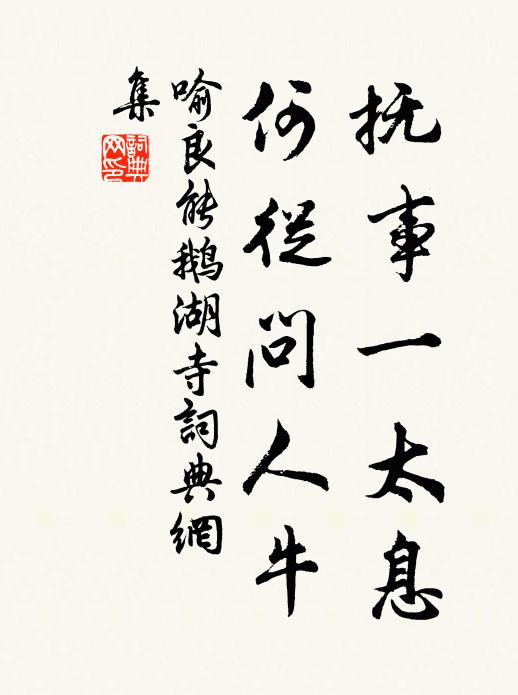 抚事一太息
何從問人牛
喻良能鵝湖寺詞典網
集
詞典
网印